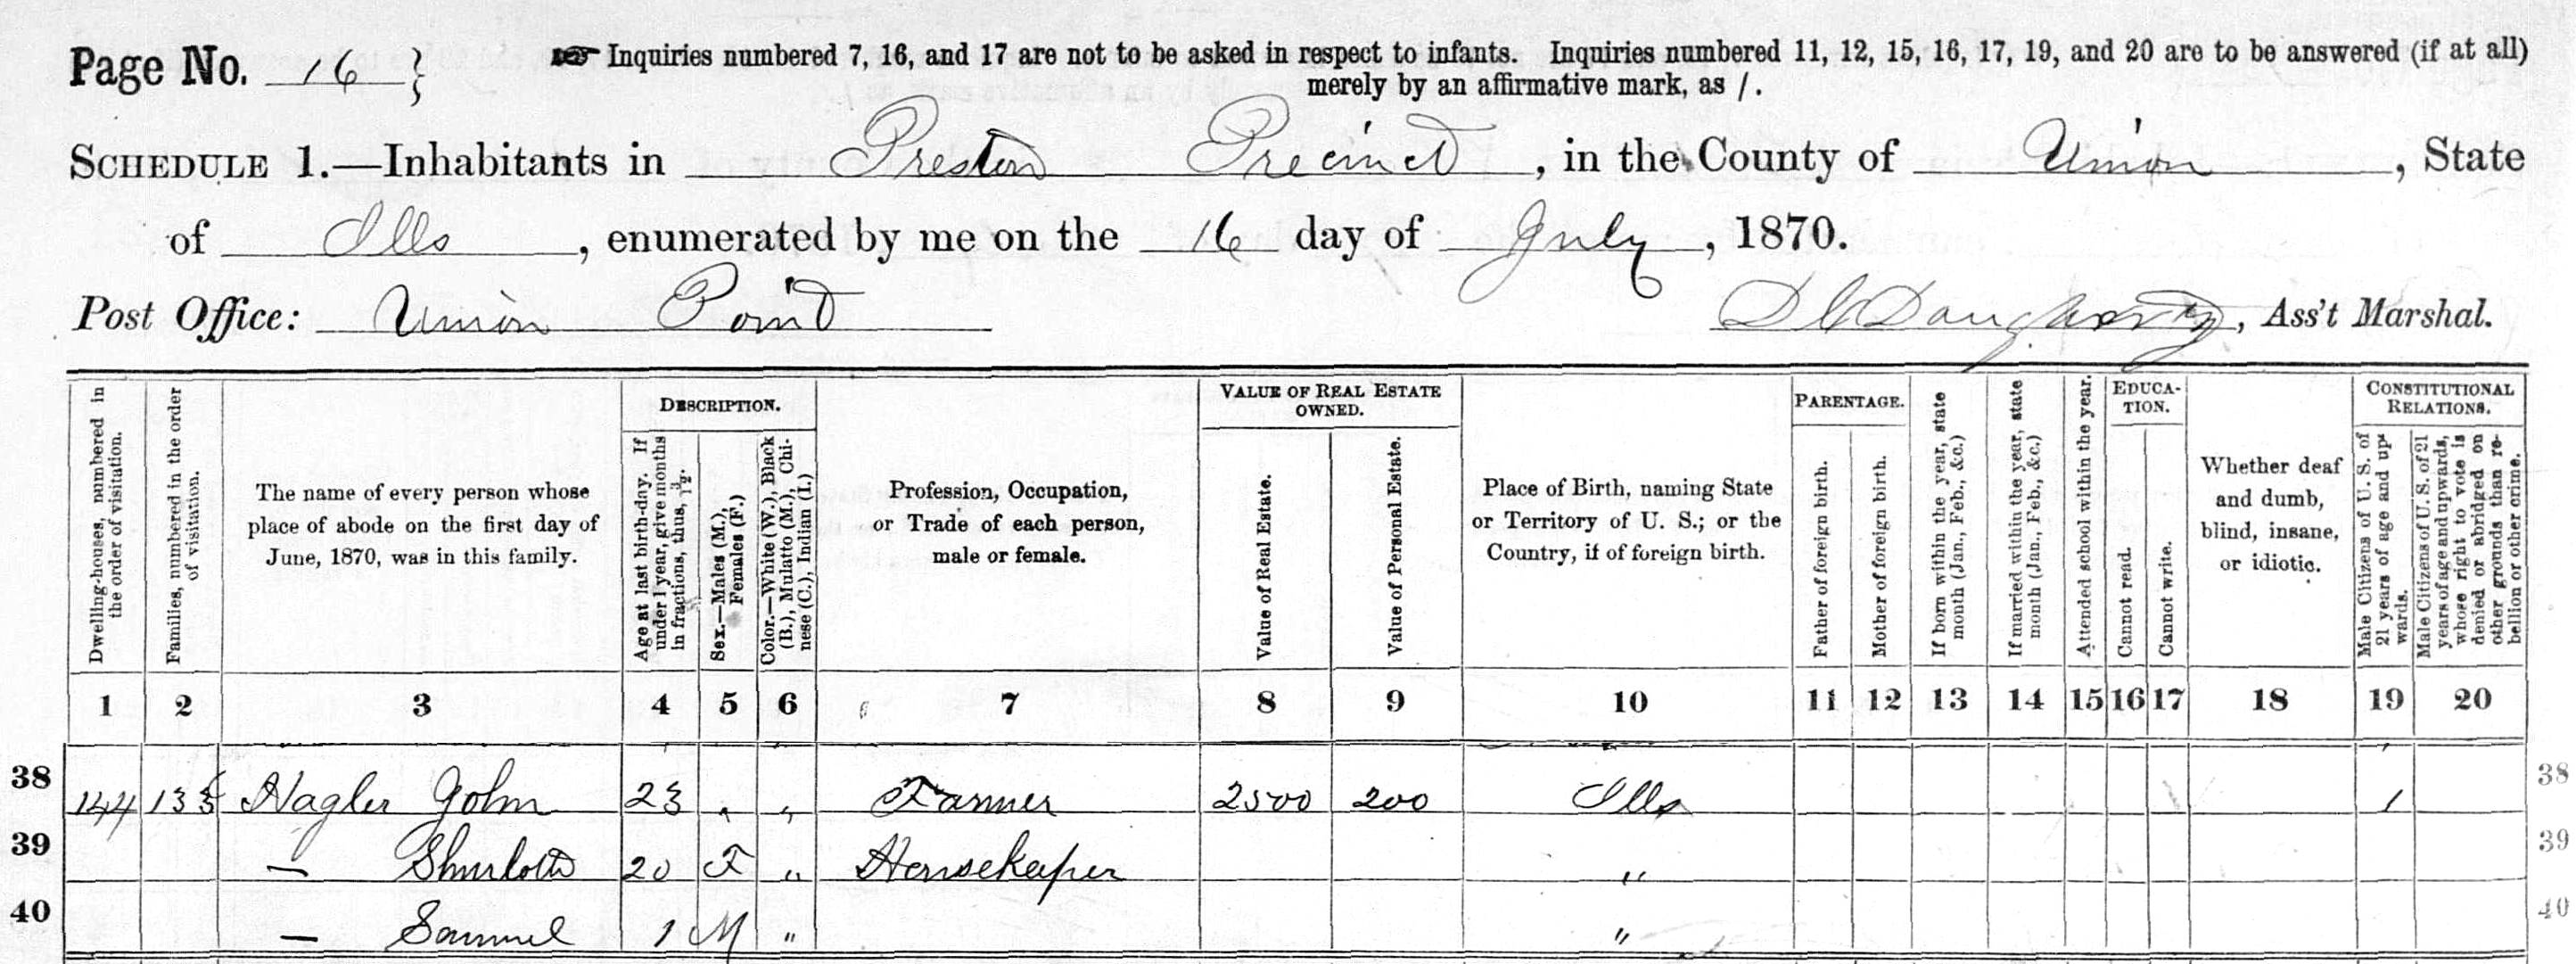 Page No. 16 } ☞ Inquiries numbered 7, 16, and 17 are not to be asked in respect to infants. Inquiries numbered 11, 12, 15, 16, 17, 19, and 20 are to be answered (if at all)
merely by an affirmative mark, as /.
SCHEDULE 1.—Inhabitants in Preston Precinct, in the County of Union, State
of Ills, enumerated by me on the 16 day of July, 1870.
Post Office: Union Point D C Daugherty, Ass't Marshal.
Dwelling-houses, numbered in the order of visitation.
Families, numbered in the order of visitation.
The name of every person whose place of abode on the first day of June, 1870, was in this family.
DESCRIPTION.
Age at last birth-day. If under 1 year, give months in fractions, thus, 3/12.
Sex.—Males (M.), Females (F.)
Color.—White (W.), Black (B.), Mulatto (M.), Chinese (C.), Indian (I.)
Profession, Occupation, or Trade of each person, male or female.
VALUE OF REAL ESTATE OWNED.
Value of Real Estate.
Value of Personal Estate.
Place of Birth, naming State or Territory of U. S.; or the Country, if of foreign birth.
PARENTAGE.
Father of foreign birth.
Mother of foreign birth.
If born within the year, state month (Jan., Feb., &c.)
If married within the year, state month (Jan., Feb., &c.)
Attended school within the year.
EDUCATION.
Cannot read.
Cannot write.
Whether deaf and dumb, blind, insane, or idiotic.
CONSTITUTIONAL RELATIONS.
Male Citizens of U. S. of 21 years of age and upwards.
Male Citizens of U. S. of 21 years of age and upwards, whose right to vote is denied or abridged on other grounds than rebellion or other crime.
1 2 3 4 5 6 7 8 9 10 11 12 13 14 15 16 17 18 19 20
38 144 135 Hagler John 23 " " Farmer 2500 200 Ills / 38
39 — Shurlott 20 F " Housekeeper " 39
40 — Samuel 1 M " " 40